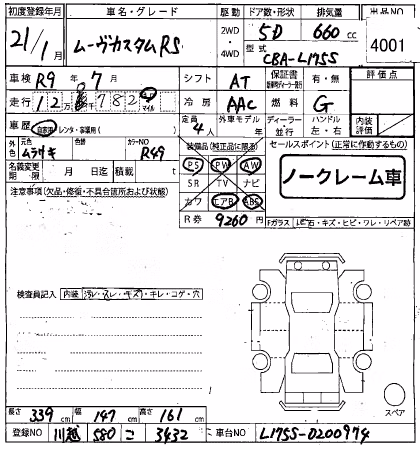 初度登録年月 車名・グレード 駆動 ドア数・形状 排気量 出品NO
21/1月 ムーヴカスタムRS 2WD 4WD 5D 660cc 4001
型式 CBA-L175S
車検 R9年7月 シフト AT 保証書 有・無 評価点
走行 冷房 AAC 燃料 G
車歴 自家用 レンタ・事業用( ) 定員 4人 外車モデル年 ディーラー 並行 ハンドル 左・右 内装評価
外色 元色 ムラサキ 色替 カラーNO R49
装備品(純正品に限る) セールスポイント(正常に動作するもの)
名義変更期限 月 日迄 積載 t
PS PW AW
SR TV ナビ
カワ エアB ABS
ノークレーム車
R券 9260円
注意事項(欠品・修復・不具合箇所および状態)
Fガラス 石・キズ・ヒビ・ワレ・リペア跡
検査員記入 内装 (汚レ・スレ・キズ)・キレ・コゲ・穴
スペア
長さ 339cm 幅 147cm 高さ 161cm
登録NO 川越 580 こ 3432 車台NO L175S-0200974